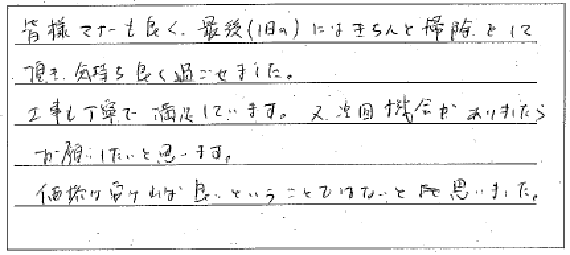 皆様マナーも良く、最後(1日の)にはきちんと掃除をして
頂き、気持ち良く過ごせました。
工事も丁寧で満足しています。又次回機会がありましたら
お願いしたいと思います。
価格は安ければ良いということではないと思いました。